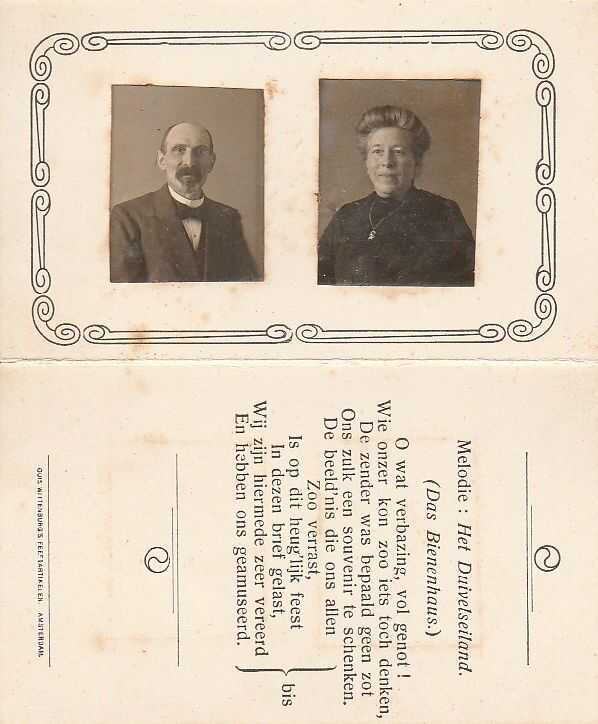 Melodie : Het Duivelseiland.
(Das Bienenhaus.)
O wat verbazing, vol genot !
Wie onzer kon zoo iets toch denken,
De zender was bepaald geen zot
Ons zulk een souvenir te schenken.
De beeld'nis die ons allen
Zoo verrast,
Is op dit heug'lijk feest
In dezen brief gelast,
Wij zijn hiermede zeer vereerd
En hebben ons geamuseerd.
bis
GUIS WITTENBURG'S FEESTARTIKELEN. AMSTERDAM.